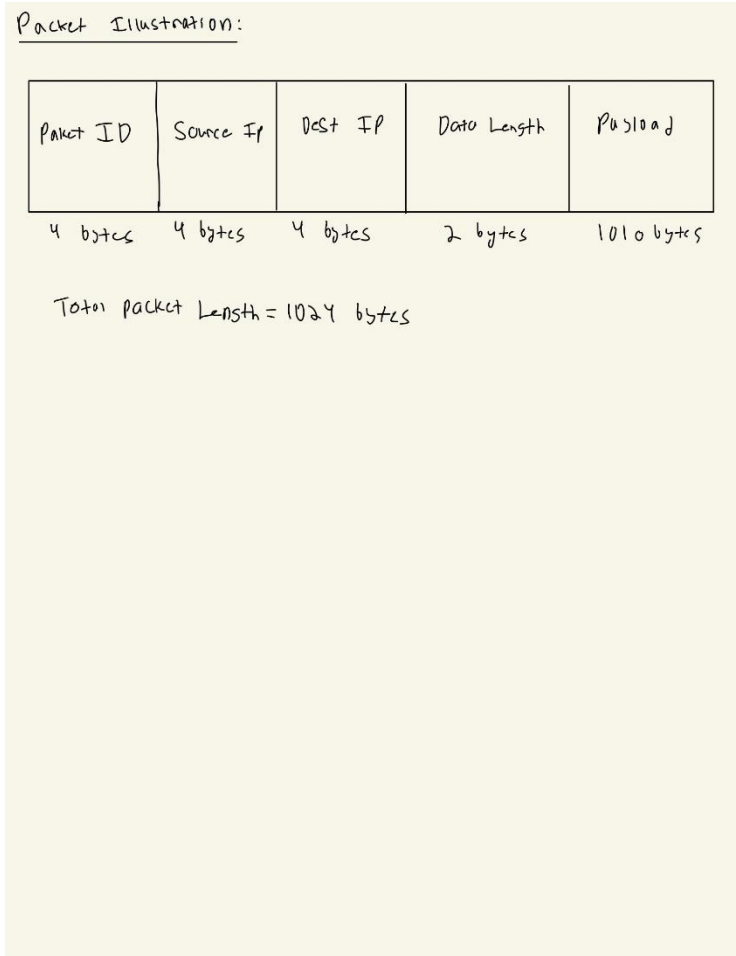 Packet Illustration:
Paket ID Source IP Dest IP Data Length Payload
4 bytes 4 bytes 4 bytes 2 bytes 1010 bytes
Total packet Length = 1024 bytes